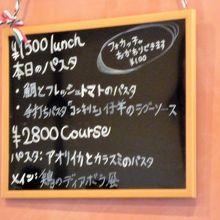 ¥1500 lunch
フォカッチャ
おかわりできます
¥100
本日のパスタ
・鯛とフレッシュトマトのパスタ
・手打ちパスタ「コンキリエ」仔羊のラグーソース
¥2800 Course
パスタ:アオリイカとカラスミのパスタ
メイン:鶏のディアボラ風